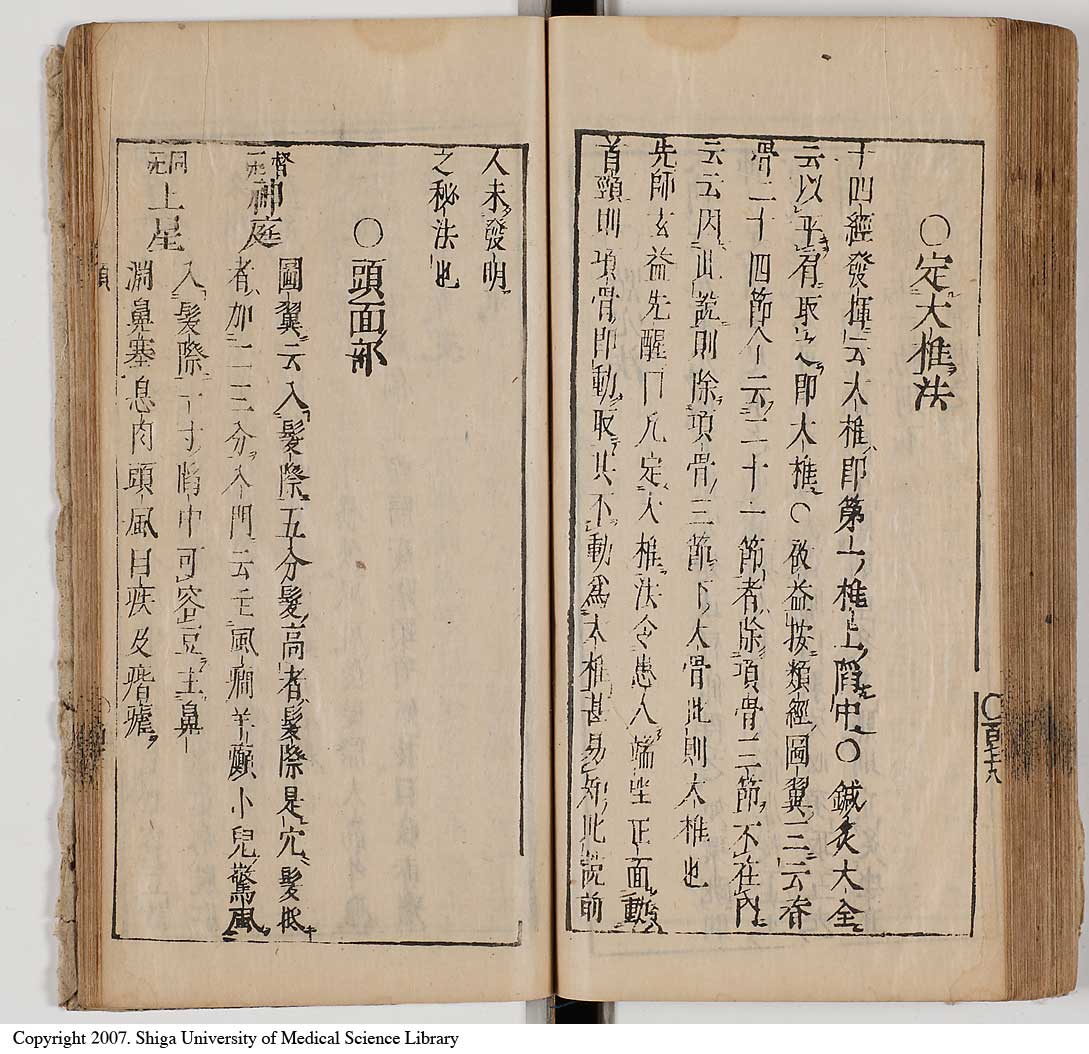 〇定大椎法
十四經發揮云大椎即第一椎上陷中〇鍼灸大全
云以平有取之即大椎〇啟益按類經圖翼三云脊
骨二十四節今云二十一節者除項骨三節不在內
云云因此說則除項骨三節下大骨此則大椎也
先師玄益先醒曰凡定大椎法令患人端坐正面動
首頸則項骨即動取其不動為大椎甚易知此說前
〇百十九
人未發明
之秘法也
〇頭面部
督神庭 圖翼云入髮際五分髮高者髮際是穴髮低
者加二三分入門云主風癇羊癲小兒驚風
同上星 入髮際一寸陷中可容豆主鼻
淵鼻塞息肉頭風目疾及痎瘧
Copyright 2007. Shiga University of Medical Science Library